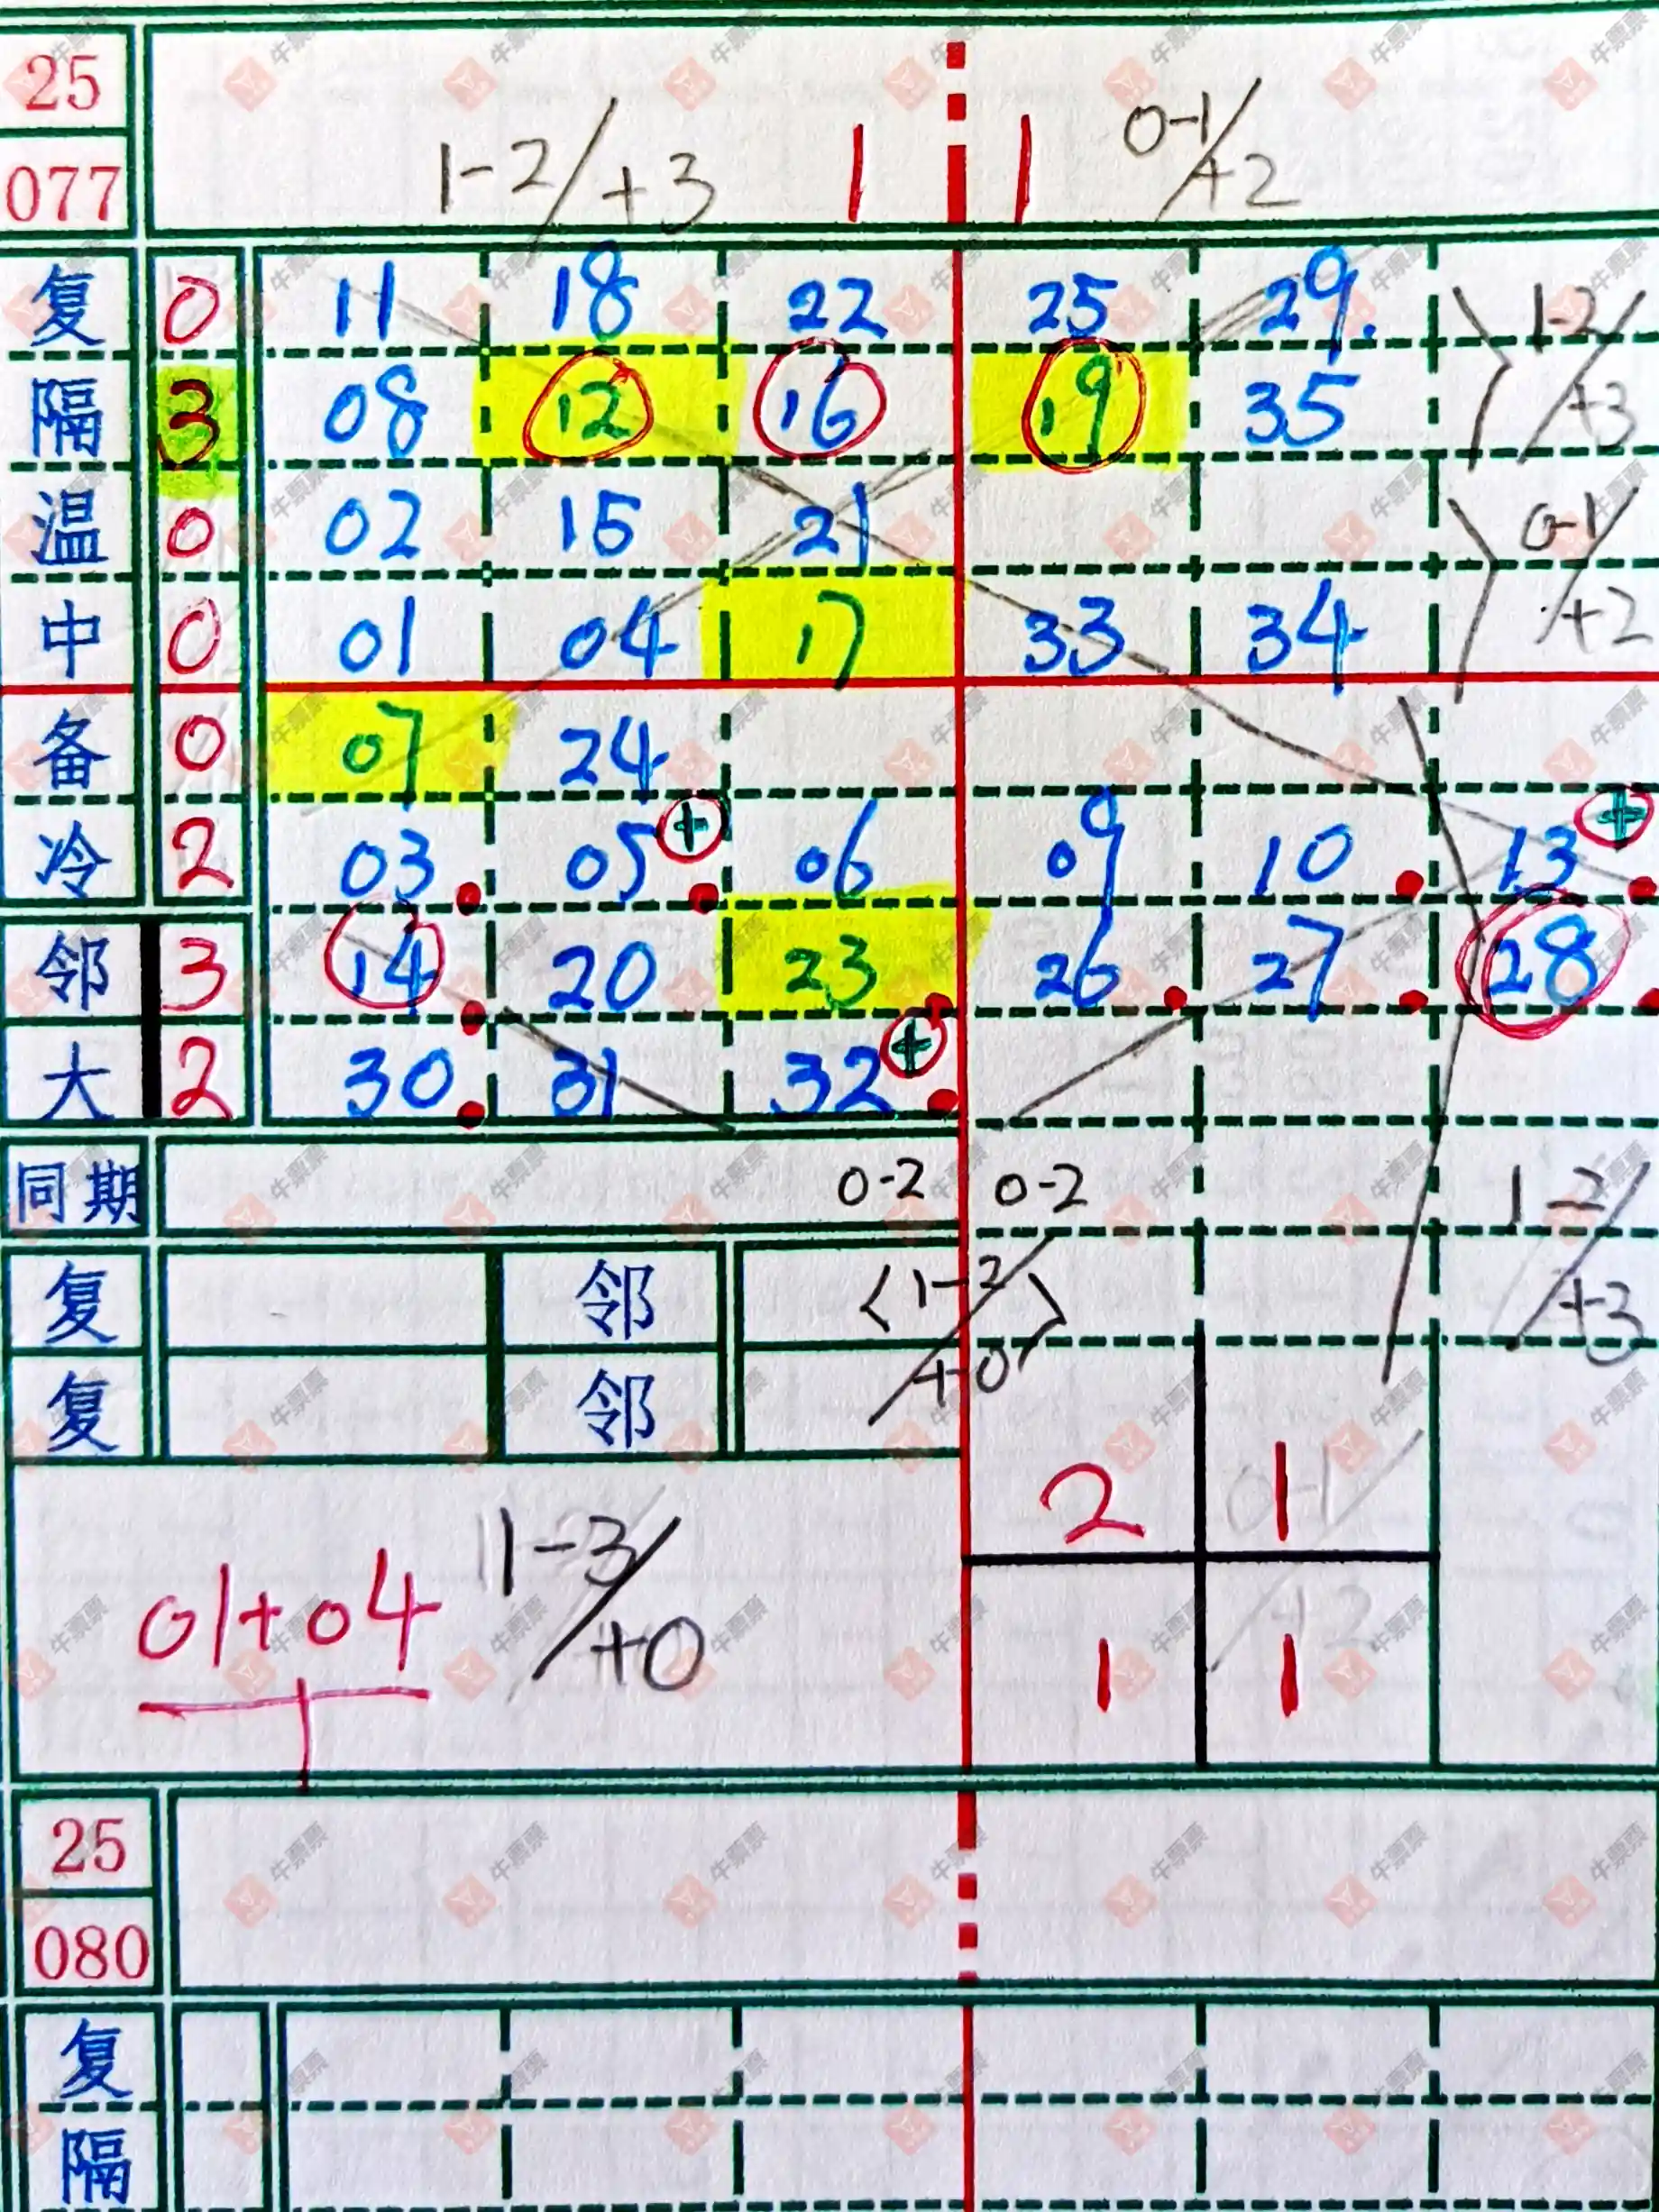 25
077 1-2/+3 1 1 0-1/+2
复 0 11 18 22 25 29. 1-2/+3
隔 3 08 12 16 19 35
温 0 02 15 21 0-1/+2
中 0 01 04 17 33 34
备 0 07 24
冷 2 03 05 + 06 09 10 13 +
邻 3 14 20 23 26 27 28
大 2 30 31 32 +
同期 0-2 0-2 1-2/+3
复 邻 <1-2/+0>
复 邻
2 1 0-1/+2
01+04 1-3/+0
1 1
25
080
复
隔
牛票票